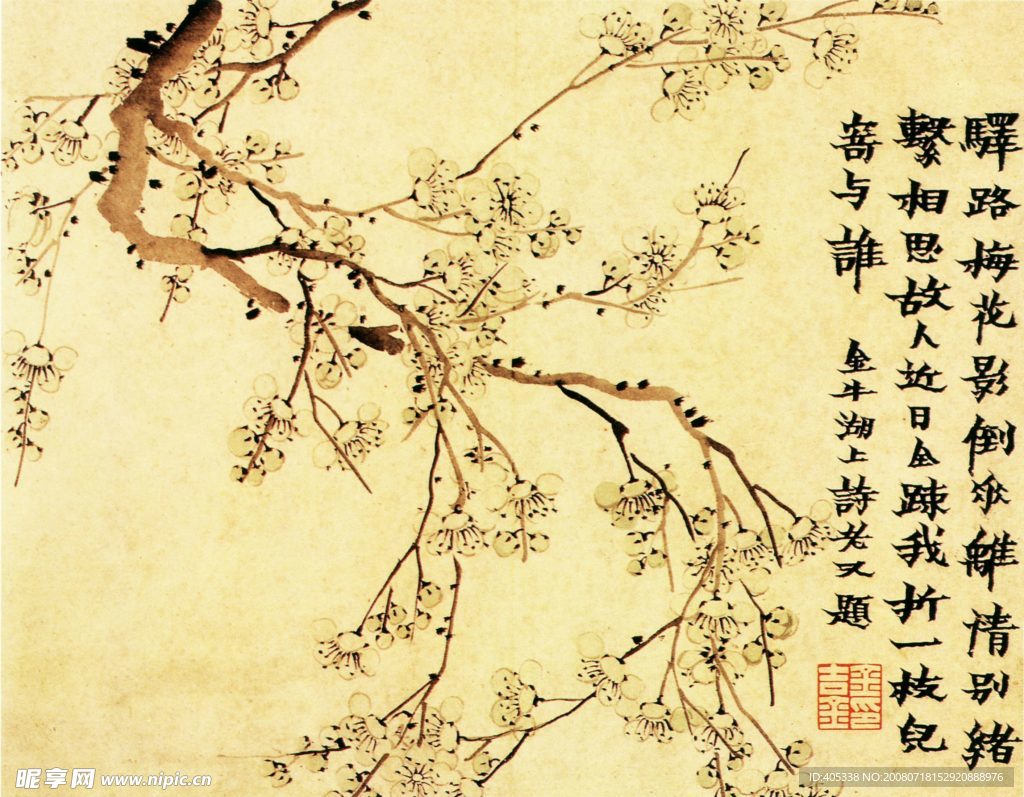 驛路梅花影倒垂離情別緒
繫相思故人近日全踈我折一枝兒
寄与誰
金牛湖上詩老又題
金吉金印
昵享网 www.nipic.cn
ID:405338 NO:20080718152920888976